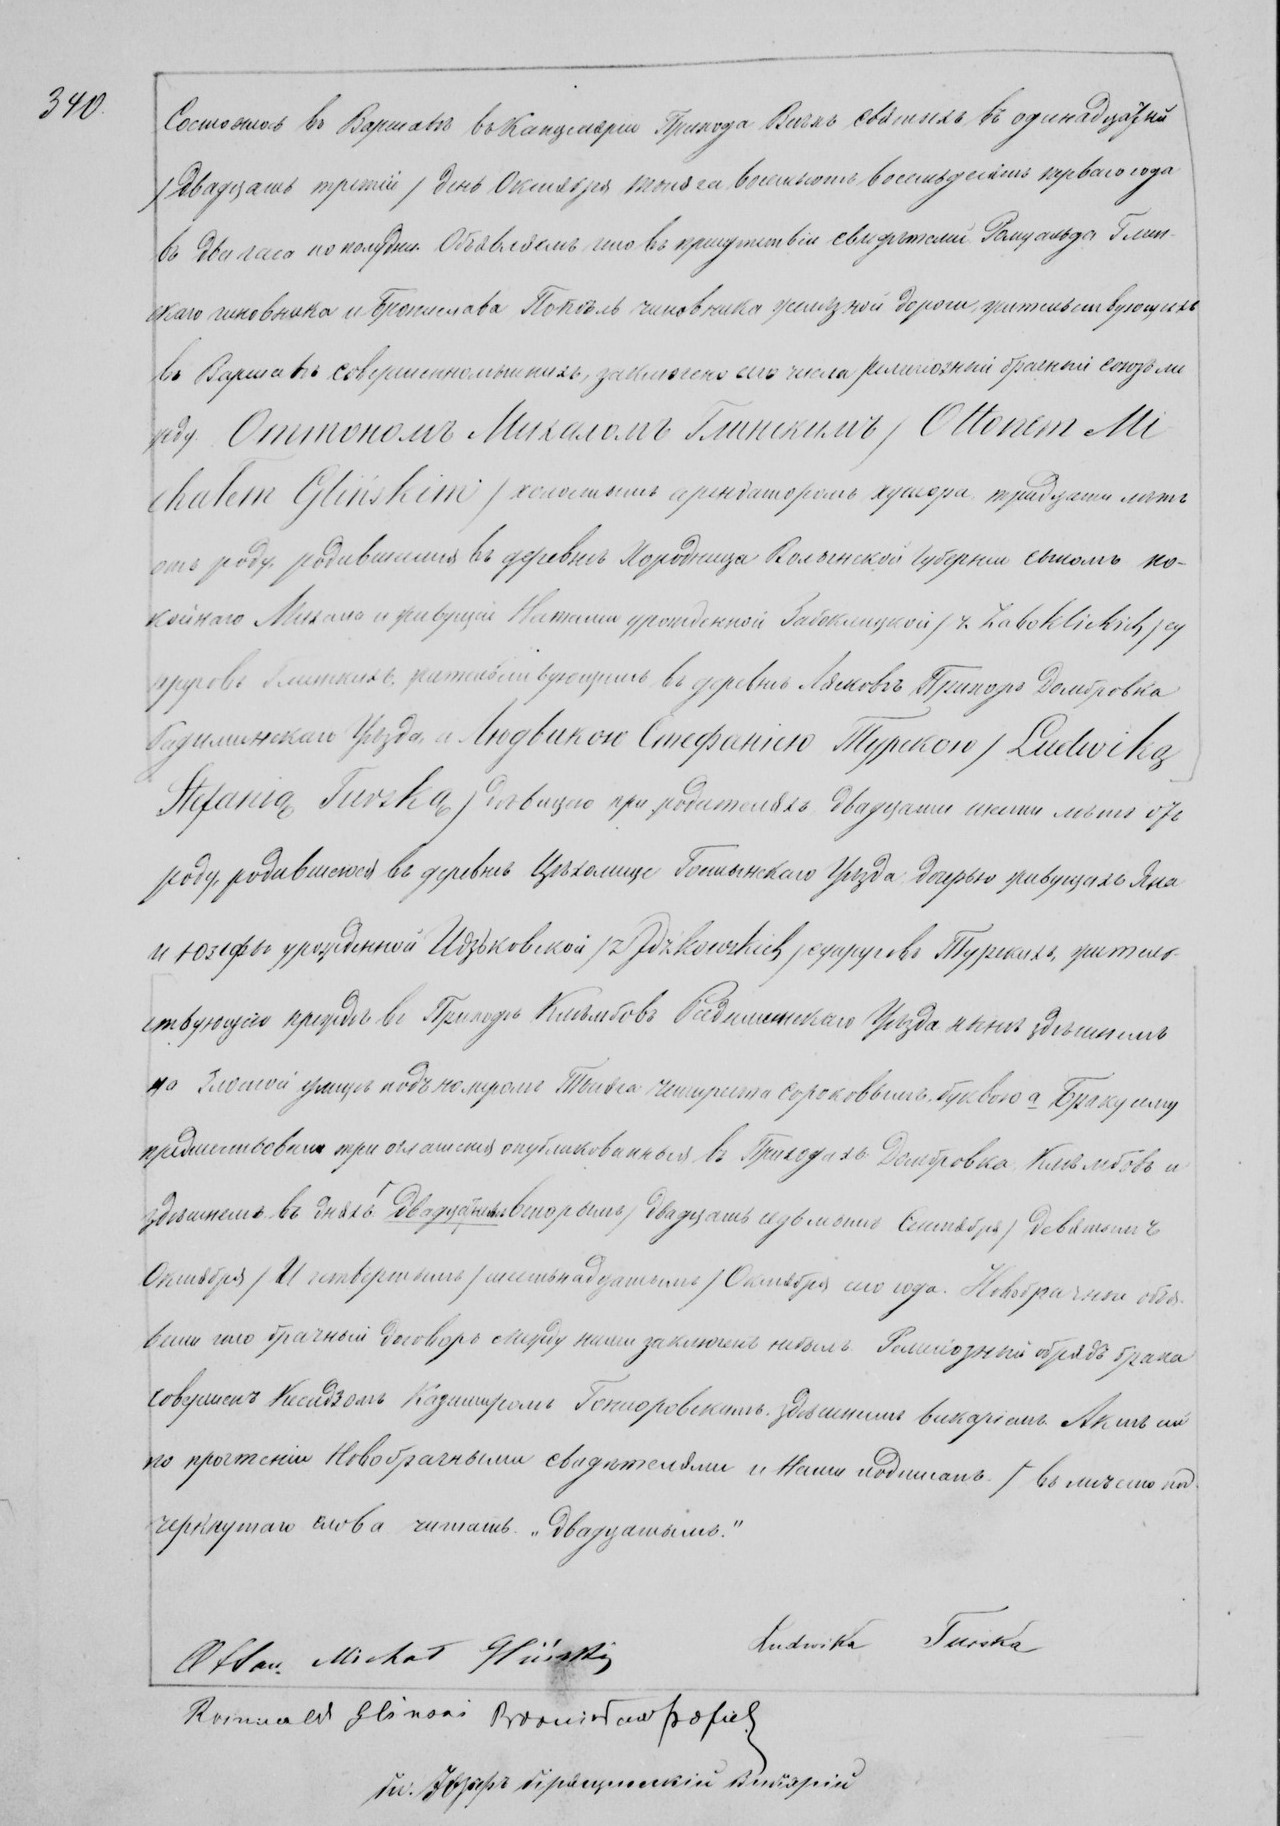 340.
Состоялось въ Варшавѣ въ Канцеляріи Прихода Всѣхъ Святыхъ въ одинадцатый
/ двадцать третій / день Октября тысяча восемьсотъ восемьдесятъ перваго года
въ два часа по полудни. Объявляемъ что въ присутствіи свидѣтелей Ромуальда Глин-
скаго чиновника и Бронислава Попѣль чиновника желѣзной дороги, жительствующихъ
въ Варшавѣ совершеннолѣтнихъ, заключенъ сего числа религіозный брачный союзъ ме
жду Оттономъ Михаломъ Глинскимъ / Ottonem Mi
chałem Glińskim / холостымъ арендаторомъ хутора, тридцати лѣтъ
отъ роду, родившимся въ деревнѣ Городница Волынской Губерніи сыномъ по-
койнаго Михала и живущей Наталіи урожденной Забоклицкой / z Zaboklickich / су
пруговъ Глинскихъ, жительствующимъ въ деревнѣ Лясковъ Прихода Домбровка
Радиминскаго Уѣзда, и Людвикою Стефаніею Турскою / Ludwiką
Stefanią Turską / дѣвицею при родителяхъ двадцати лѣтъ отъ
роду, родившеюся въ деревнѣ Цѣхомице Гостынскаго Уѣзда дочерью живущихъ Яна
и Юзефы урожденной Идзьковской / z Idźkowskich / супруговъ Турскихъ, житель-
ствующею прежде въ Приходѣ Клембовъ Радиминскаго Уѣзда нынѣ здѣшнемъ
на Злотой улицѣ подъ номеромъ Тысяча четыреста сороковымъ буквою а Браку сему
предшествовали три оглашенія опубликованныя въ Приходахъ Домбровка, Клембовъ и
здѣшнемъ въ дняхъ Г двадцать вторымъ / двадцать седьмымъ Сентября / девятомъ
Октября / И четвертымъ / шестьнадцатымъ / Октября сего года. Новобрачные объя-
вили что брачный договоръ между ними заключенъ небылъ. Религіозный обрядъ брака
совершенъ Ксендзомъ Казимиромъ здѣшнимъ викаріемъ. Актъ сей
по прочтеніи Новобрачными свидѣтелями и Нами подписанъ. Г въ мѣсто под-
черкнутаго слова читать „двадцатымъ."
Otton Michał Gliński Ludwika Turska
Romuald Glinski Bronisław Popiel
Кс. Юзефъ Викарій